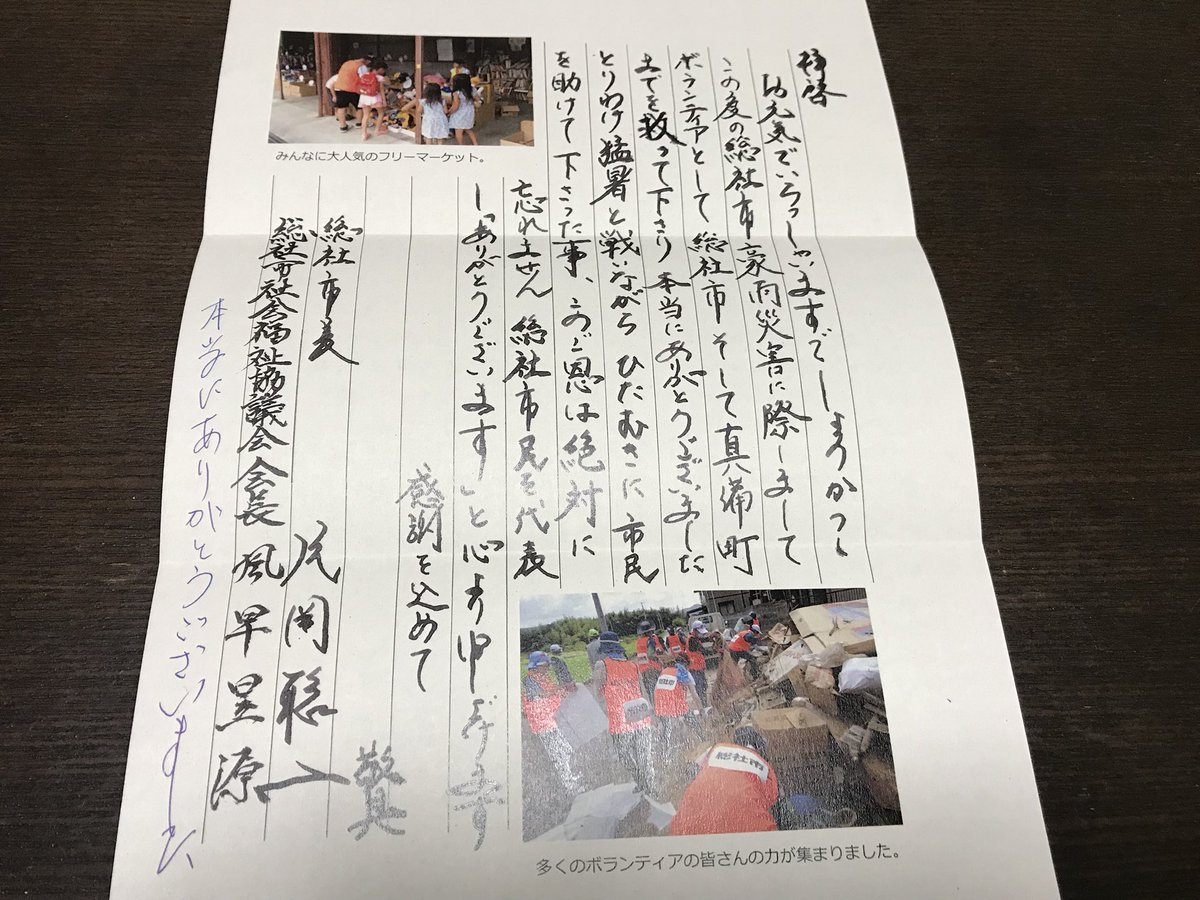 拝啓
お元気でいらっしゃいますでしょうかっ
この度の総社市豪雨災害に際しまして
ボランティアとして 総社市 そして真備町
までを救って下さり 本当にありがとうございました
とりわけ猛暑と戦いながら ひたむきに 市民
を助けて下さった事、このご恩は絶対に
忘れません 総社市民を代表
し「ありがとうございます」と心より申しあげます
感謝を込めて
敬具
総社市長 片岡聡一
総社市社会福祉協議会会長 風早昱源
本当にありがとうございました
みんなに大人気のフリーマーケット。
総社市
多くのボランティアの皆さんの力が集まりました。